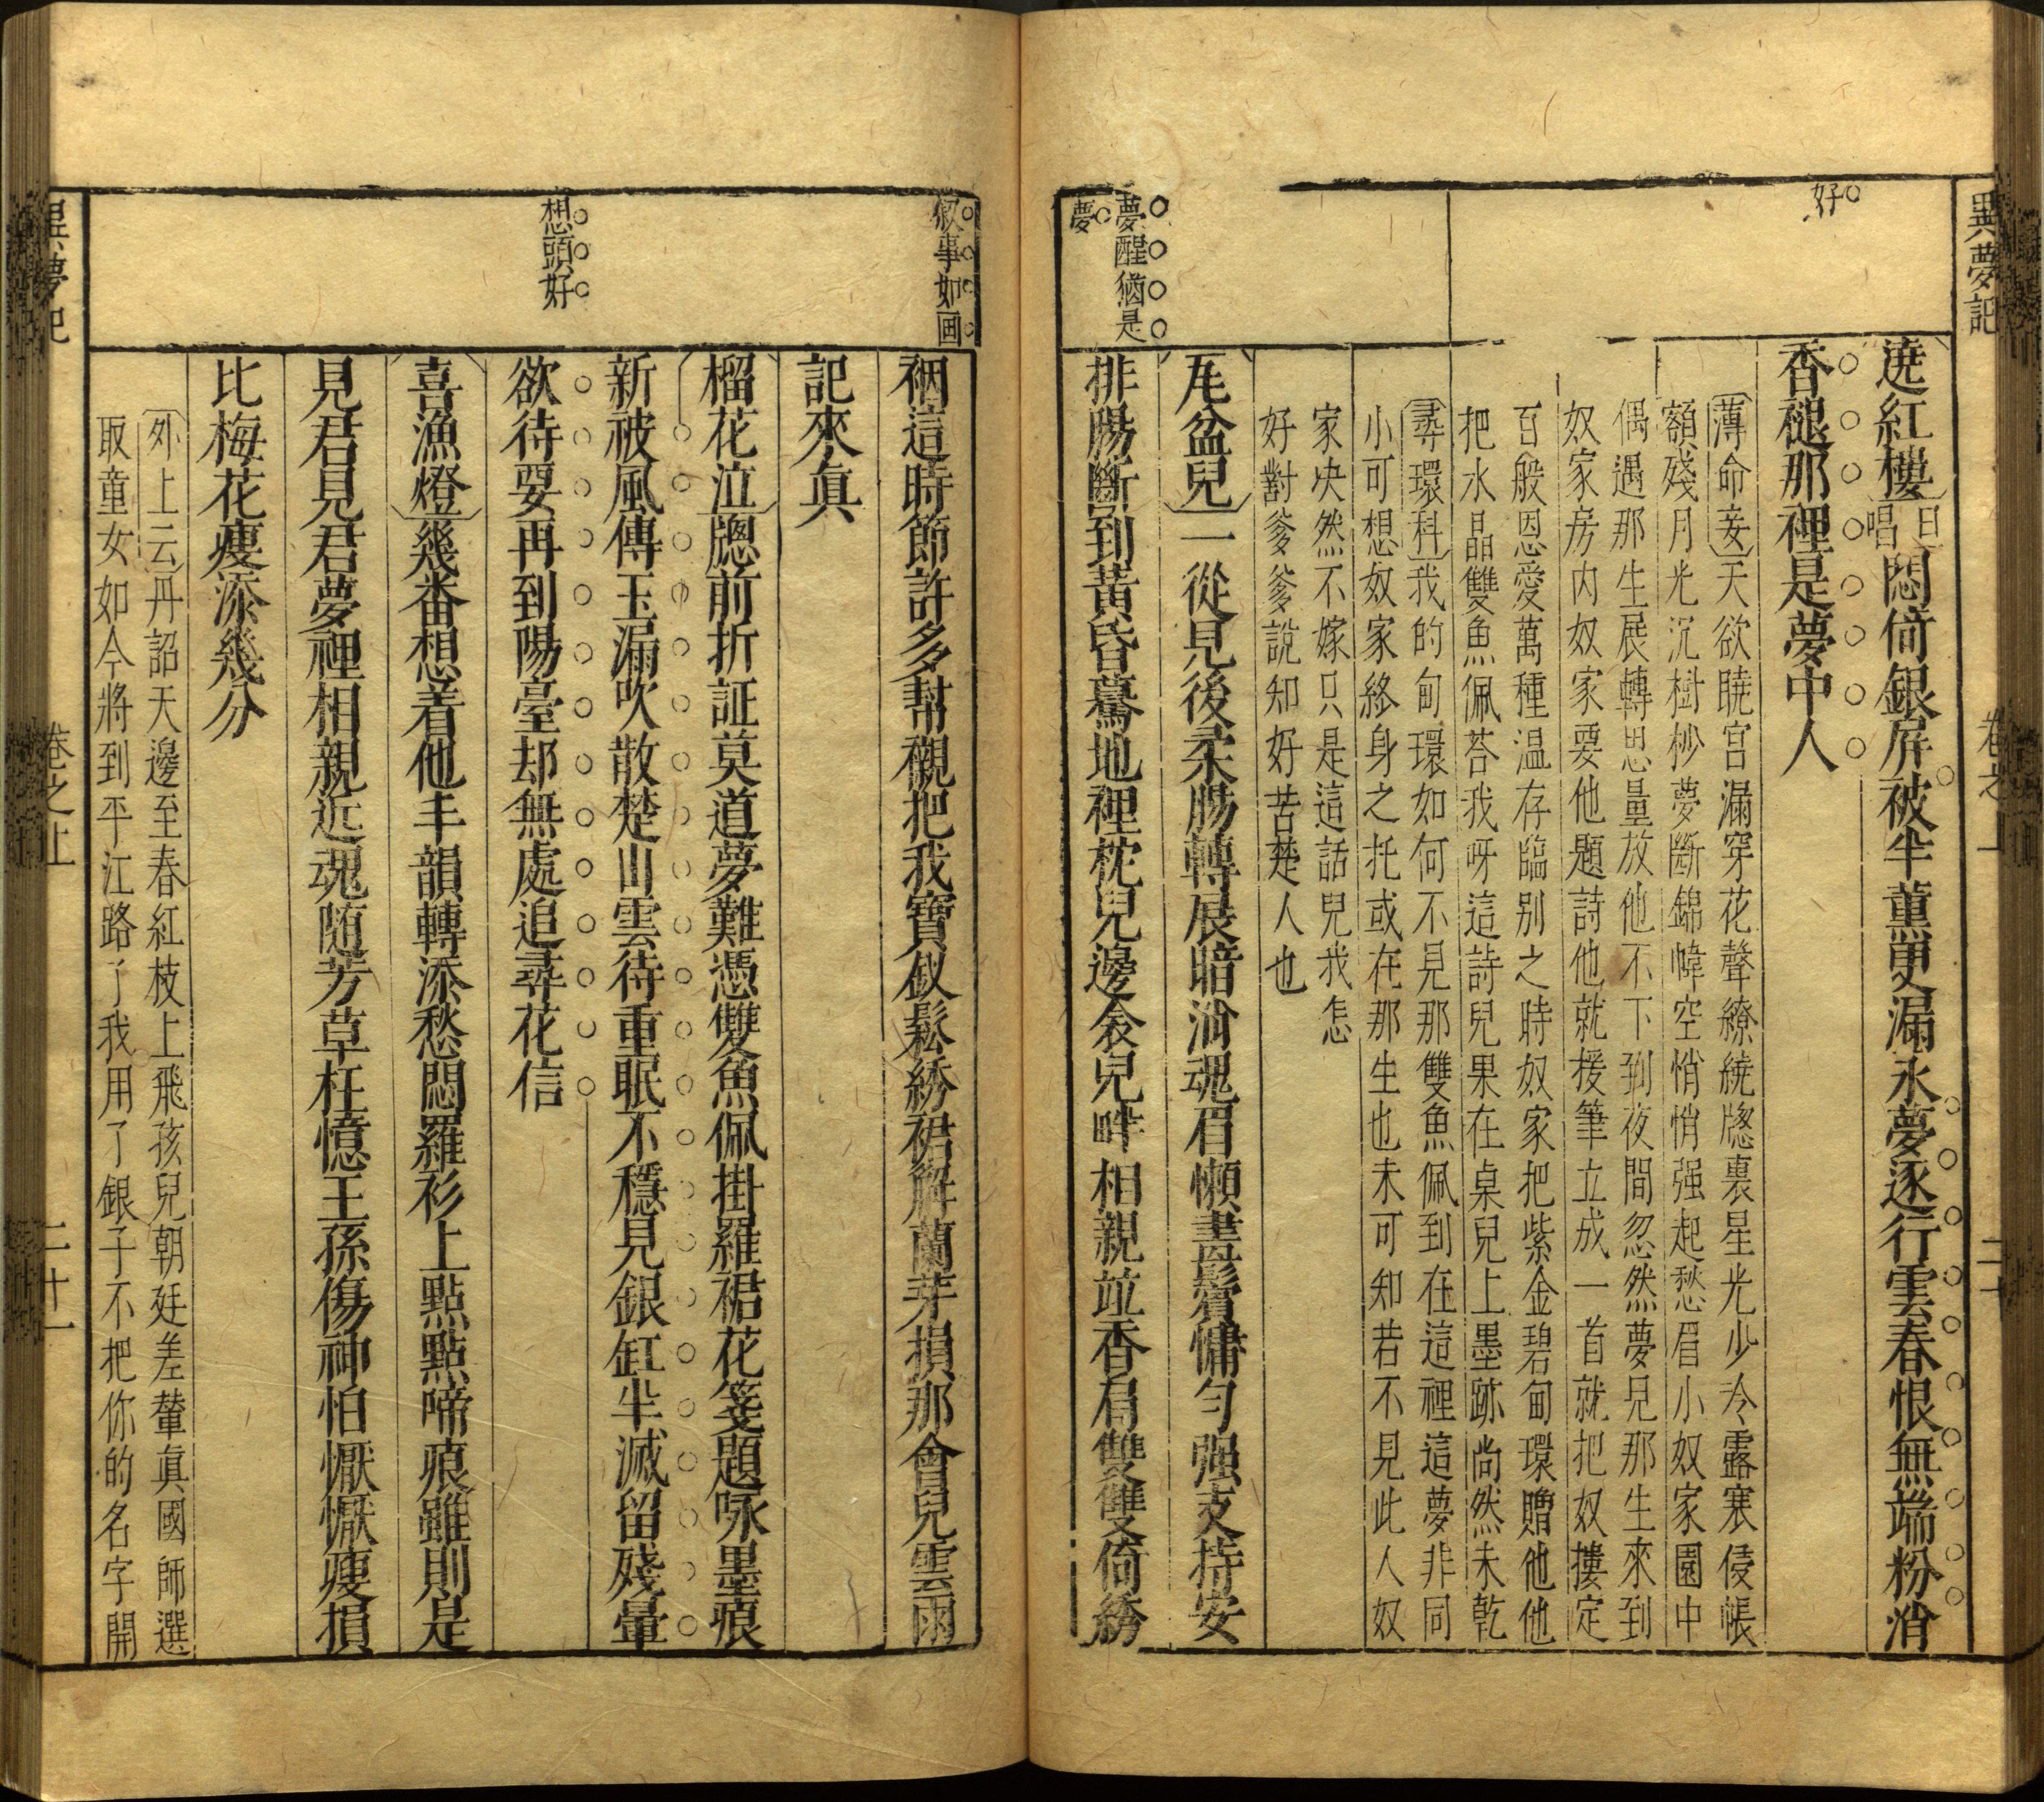 異夢記
卷之上
二十
好
遶紅樓旦唱悶倚銀屏被半薰更漏永夢逐行雲春恨無端粉消
香褪那裡是夢中人
薄命妾天欲曉宮漏穿花聲繚繞牕裏星光少冷露寒侵帳
額殘月光沉樹杪夢斷錦幃空悄悄强起愁眉小奴家園中
偶遇那生展轉思量放他不下到夜間忽然夢見那生來到
奴家房内奴家要他題詩他就援筆立成一首就把奴摟定
百般恩愛萬種温存臨别之時奴家把紫金碧甸環贈他他
把水晶雙魚佩荅我呀這詩兒果在桌兒上墨跡尚然未乾
尋環科我的甸環如何不見那雙魚佩到在這裡這夢非同
小可想奴家終身之托或在那生也未可知若不見此人奴
家决然不嫁只是這話兒我怎
好對爹爹說知好苦楚人也
夢醒猶是
夢
瓦盆兒一從見後柔腸轉展暗消魂眉懶畫鬢慵勻强支持安
排腸斷到黃昏驀地裡枕兒邊衾兒畔相親並香肩雙雙倚綉
叙事如画
裀這時節許多幫襯把我寶釵鬆綉裙解蘭芽損那會兒雲雨
記來眞
榴花泣牕前折証莫道夢難憑雙魚佩掛羅裙花箋題咏墨痕
新被風傳玉漏吹散楚山雲待重眠不穩見銀缸半滅留殘暈
想頭好
欲待要再到陽臺却無處追尋花信
喜漁燈幾番想着他丰韻轉添愁悶羅衫上點點啼痕雖則是
見君見君夢裡相親近魂随芳草枉憶王孫傷神怕懨懨瘦損
比梅花瘦添幾分
外上云丹詔天邊至春紅枝上飛孩兒朝廷差輦真國師選
取童女如今將到平江路了我用了銀子不把你的名字開
異夢記
卷之上
二十一